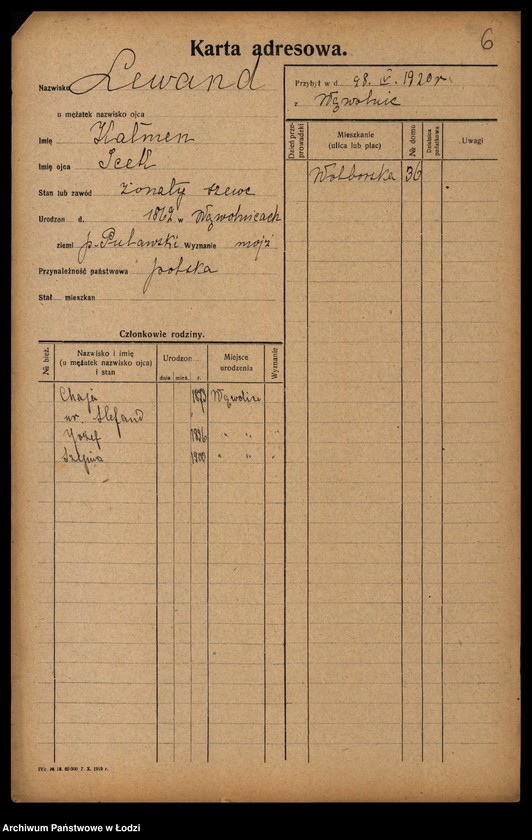 6
Karta adresowa.
Nazwisko Lewand
u mężatek nazwisko ojca
Imię Kalmen
Imię ojca Icek
Stan lub zawód żonaty szewc
Urodzon d. 1862 w Wąwolnicach
ziemi p. Puławski Wyznanie mojż
Przynależność państwowa polska
Stał. mieszkan
Przybył w d. 28. IV. 1920 r.
z Wąwolnic
Dzień prze-prowadzki
Mieszkanie
(ulica lub plac)
№ domu
Dzielnica podatkowa
Uwagi
Wolborska 36
Członkowie rodziny.
№ bież.
Nazwisko i imię
(u mężatek nazwisko ojca)
i stan
Urodzon
dnia mies. r.
Miejsce
urodzenia
Wyznanie
Chaja 1873 Wąwolnic
ur.
Yozef 1896 " "
1900 " "
7. X. 1919 r.
Archiwum Państwowe w Łodzi